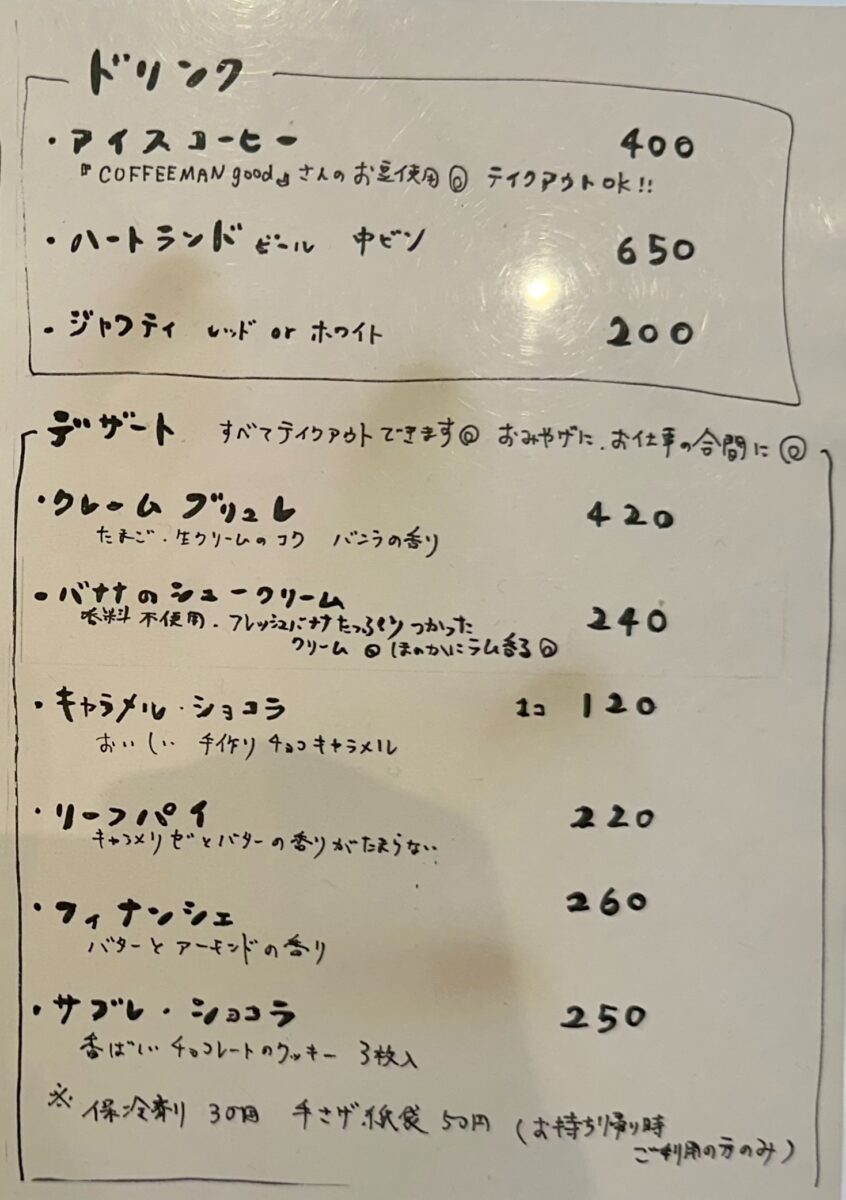 ドリンク
・アイスコーヒー 400
『COFFEEMAN good』さんのお豆使用◎ テイクアウトok!!
・ハートランドビール 中ビン 650
・ジャワティ レッド or ホワイト 200
デザート すべてテイクアウトできます◎ おみやげに、お仕事の合間に◎
・クレームブリュレ 420
たまご・生クリームのコク バニラの香り
・バナナのシュークリーム 240
香料不使用・フレッシュバナナたっぷりつかった
クリーム◎ほのかにラム香る◎
・キャラメル・ショコラ 1コ 120
おいしい 手作りチョコキャラメル
・リーフパイ 220
キャラメリゼとバターの香りがたまらない
・フィナンシェ 260
バターとアーモンドの香り
・サブレ・ショコラ 250
香ばしいチョコレートのクッキー 3枚入
※保冷剤 30円 手さげ紙袋 50円 (お持ち帰り時
ご利用の方のみ)